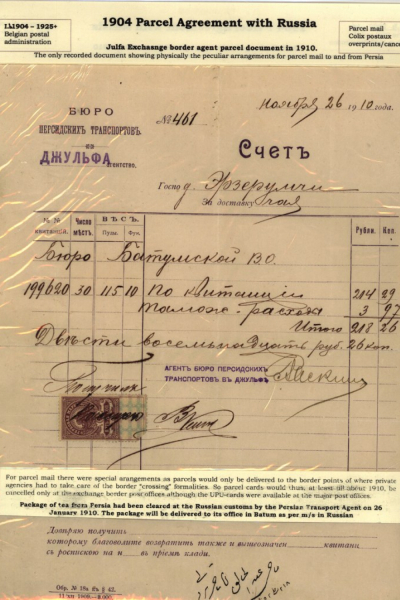 1904 - 1925+
Belgian postal
administration
1904 Parcel Agreement with Russia
Julfa Exchasnge border agent parcel document in 1910.
Parcel mail
Colix postaux
overprints/cance
The only recorded document showing physically the peculiar arrangements for parcel mail to and from Persia
Ноября 26 1910 года.
БЮРО
ПЕРСИДСКИХЪ ТРАНСПОРТОВЪ.
№ 461
ДЖУЛЬФА
Агентство.
Счетъ
Госпо д. Эрзерумчи
За доставку чая
№ №
квитанцій.
Число
мѣстъ.
В Ѣ С Ъ.
Пуды.
Фун.
Рубли.
Коп.
Бюро Батумской
199620 30 115 10 по квитанціи 214 29
Тамож. расхода 3 97
Итого 218 26
Двѣсти восемьнадцать руб. 26 коп.
АГЕНТЪ БЮРО ПЕРСИДСКИХЪ
ТРАНСПОРТОВЪ ВЪ ДЖУЛЬФѢ
Получилъ
For parcel mail there were special arangements as parcels would only be delivered to the border points of where private
agencies had to take care of the border "crossing" formalities. So parcel cards would thus, at least till about 1910, be
cancelled only at the exchange border post offices although the UPU-cards were available at the major post offices.
Package of tea from Persia had been cleared at the Russian customs by the Persian Transport Agent on 26
January 1910. The package will be delivered to its office in Batum as per m/s in Russian
Довѣряю получить
которому благоволите возвратить также и вышеозначен квитанц
съ росписокою на н въ пріемѣ клади.
Обр. № 18a къ § 42.